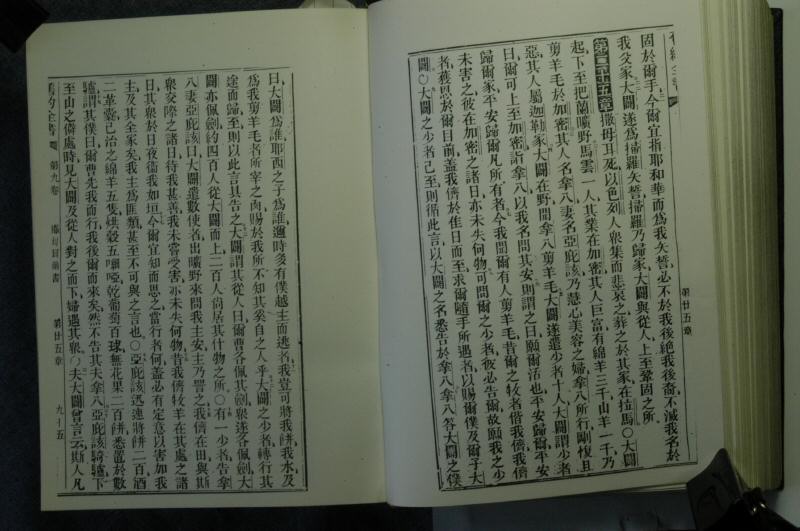 舊約全書
固於爾手今爾宜指耶和華而為我矢誓必不於我後絕我後裔不滅我名於
我父家大闢遂為掃羅矢誓掃羅乃歸家大闢與從人上至鞏固之所
第二十五章 撒母耳死以色列人衆集而悲哀之葬之於其家在拉馬〇大闢
起下至把蘭曠野馬雲一人其業在加密其人巨富有綿羊三千山羊一千乃
剪羊毛於加密其人名拿八妻名亞庇該乃慧心美容之婦拿八所行剛愎且
惡其人屬迦勒家大闢在野聞拿八剪羊毛大闢遂遣少者十人大闢謂少者
曰爾可上至加密詣拿八以我名問其安則謂之曰願爾活也平安歸爾平安
歸爾家平安歸爾凡所有者今我聞爾有人剪羊毛昔爾之牧者偕我儕我儕
未害之彼在加密之諸日亦未失何物可問爾之少者彼必告爾故願我之少
者獲恩於爾目前蓋我儕於佳日而至求爾隨手所遇者以賜爾僕及爾子大
闢〇大闢之少者已至則循此言以大闢之名悉告於拿八拿八答大闢之僕
第廿五章
曰大闢為誰耶西之子為誰邇時多有僕越主而逃者我豈可將我餅我水及
為我剪羊毛者所宰之肉賜於我所不知其奚自之人乎大闢之少者轉行其
途而歸至則以此言具告之大闢謂其從人曰爾曹各佩其劍衆遂各佩劍大
闢亦佩劍約四百人從大闢而上二百人尚居其什物之所〇有一少者告拿
八妻亞庇該曰大闢遣數使者出曠野來問我主安主乃詈之我儕在田與斯
衆交際之諸日待我甚善我未嘗受害亦未失何物昔我儕牧羊在其處之諸
日其衆於日夜衛我如垣今爾宜知而思之當行者何蓋必有定意以害加我
主及其全家矣我主為匪類甚至不可與之言也〇亞庇該迅速將餅二百酒
二革囊已治之綿羊五隻烘穀五嗶啞乾葡萄百球無花果二百餅悉置於數
驢謂其僕曰爾曹先我而行我後爾而來矣然不告其夫拿八亞庇該騎驢下
至山之僻處時見大闢及從人對之而下婦遇其衆〇夫大闢曾言云斯人凡
舊約全書 第九卷 第廿五章 九十五